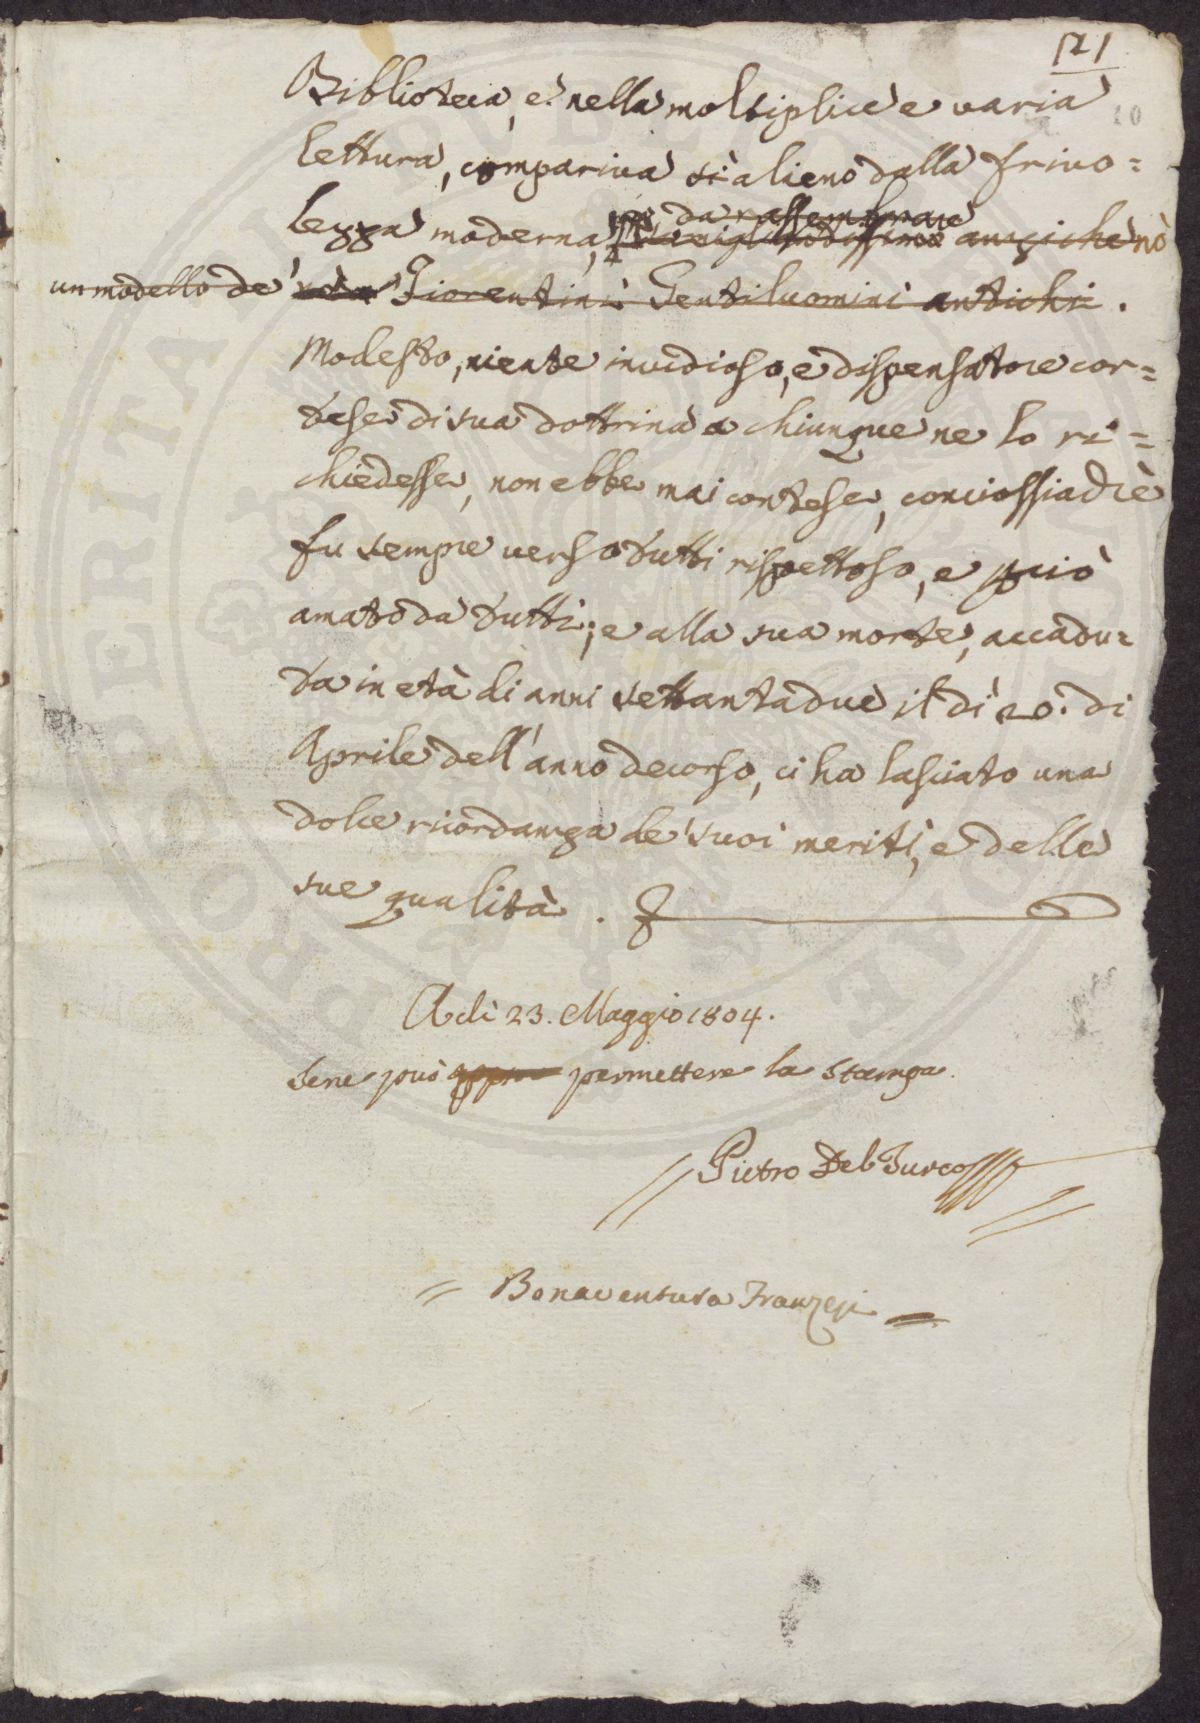 121
20
Biblioteca, e nella moltiplice e varia
lettura, compariva sì alieno dalla frivo=
da rassembrare
lezza moderna, anziche nò
un modello de' Fiorentini Gentiluomini antichi.
Modesto, niente invidioso, e dispensatore cor=
tese di sua dottrina a chiunque ne lo ri=
chiedesse, non ebbe mai contese, conciossiachè
fu sempre verso tutti rispettoso, e perciò
amato da tutti; e alla sua morte, accadu=
ta in età di anni settantadue il dì 20. di
Aprile dell'anno decorso, ci ha lasciato una
dolce ricordanza de' suoi meriti, e delle
sue qualità.
A dì 23. Maggio 1804.
Se ne può permettere la stampa.
Pietro Del Turco
Bonaventura Franzesi
PROSPERITA